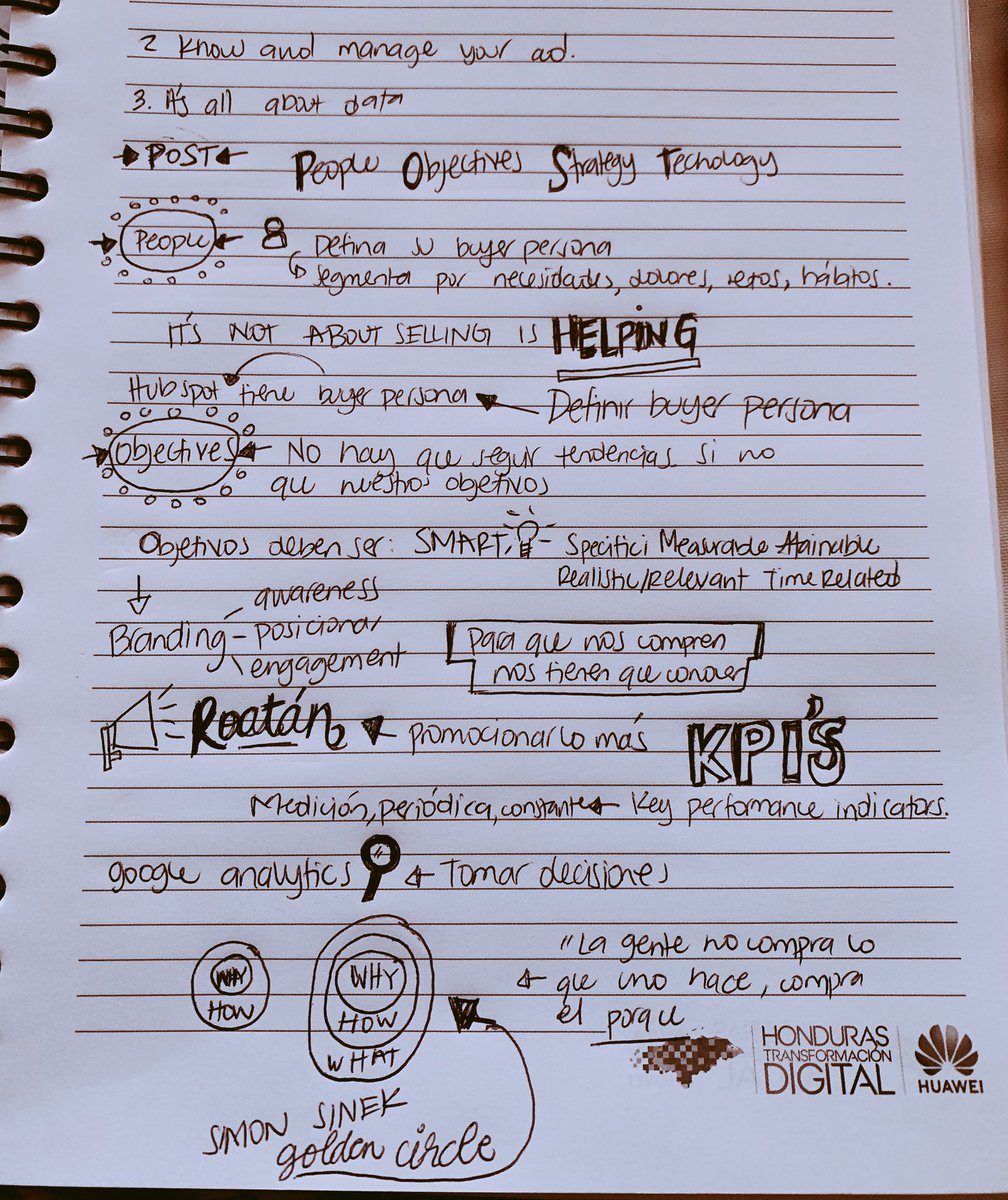 2 Know and manage your ad.
3. It's all about data
POST People Objectives Strategy Tecnology
People Defina su buyer persona
segmenta por necesidades, dolores, retos, hábitos.
IT'S NOT ABOUT SELLING IS HELPING
Hubspot tiene buyer persona Definir buyer persona
Objectives No hay que seguir tendencias si no
que nuestros objetivos
Objetivos deben ser: SMART Specifici Measurable Attainable
Realistic/Relevant Time Related
awareness
Branding posicionar
engagement
Para que nos compren
nos tienen que conocer
Roatán promocionarlo más KPI'S
Medición, periódica, constante Key performance indicators.
google analytics Tomar decisiones
"La gente no compra lo
que uno hace, compra
el porque
WHY
HOW
WHY
HOW
WHAT
SIMON SINEK
golden circle
HONDURAS
TRANSFORMACIÓN
DIGITAL
HUAWEI